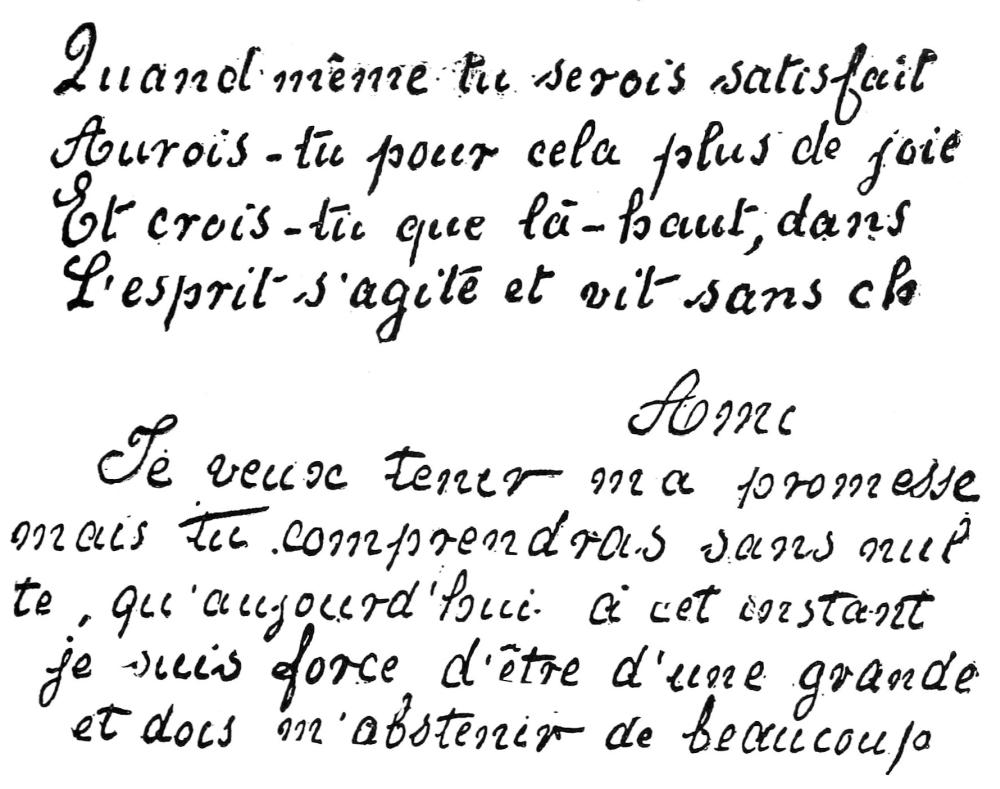 Quand même tu serois satisfait
Aurois-tu pour cela plus de joie
Et crois-tu que là-haut, dans
L'esprit s'agite et vit sans ch
Ami
Je veux tenir ma promesse
mais tu comprendras sans nul
te, qu'aujourd'hui à cet instant
je suis force d'être d'une grande
et dois m'abstenir de beaucoup